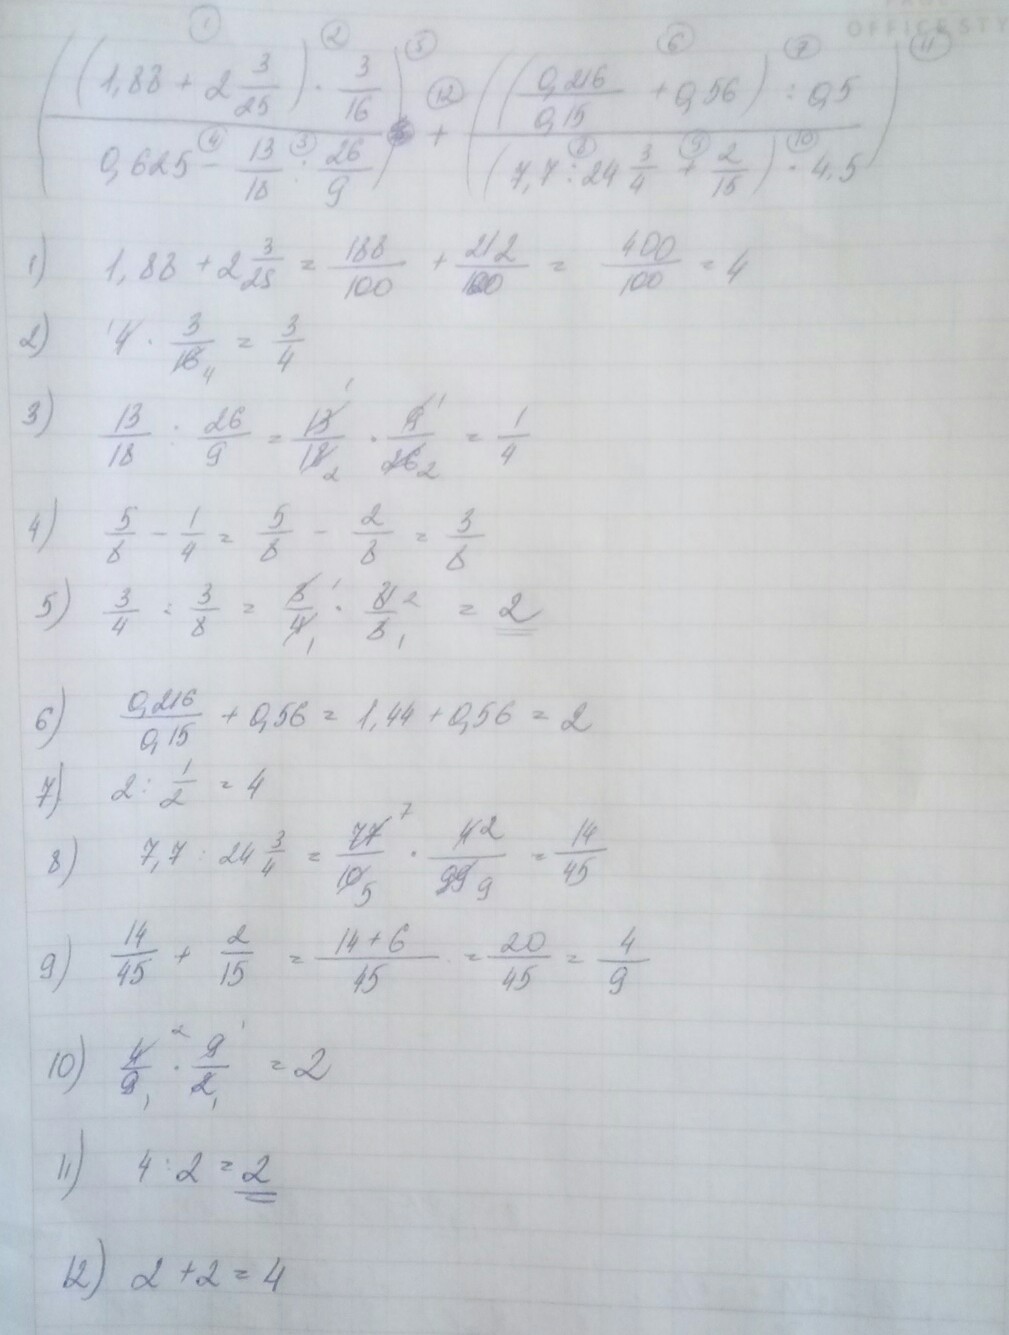 OFFICE STY
① ② ⑤ ⑥ ⑦ ⑪
((1,88 + 2 3/25) · 3/16) / (0,625 - 13/18 : 26/9) + ((0,216/0,15 + 0,56) : 0,5) / ((7,7 : 24 3/4 + 2/15) · 4,5)
④ ③ ⑫ ⑧ ⑨ ⑩
1) 1,88 + 2 3/25 = 188/100 + 212/100 = 400/100 = 4
2) 4 · 3/16 = 3/4
3) 13/18 : 26/9 = 13/18 · 9/26 = 1/4
4) 5/8 - 1/4 = 5/8 - 2/8 = 3/8
5) 3/4 : 3/8 = 3/4 · 8/3 = 2
6) 0,216/0,15 + 0,56 = 1,44 + 0,56 = 2
7) 2 : 1/2 = 4
8) 7,7 : 24 3/4 = 77/10 · 4/99 = 14/45
9) 14/45 + 2/15 = 14+6/45 = 20/45 = 4/9
10) 4/9 · 9/2 = 2
11) 4 : 2 = 2
12) 2 + 2 = 4